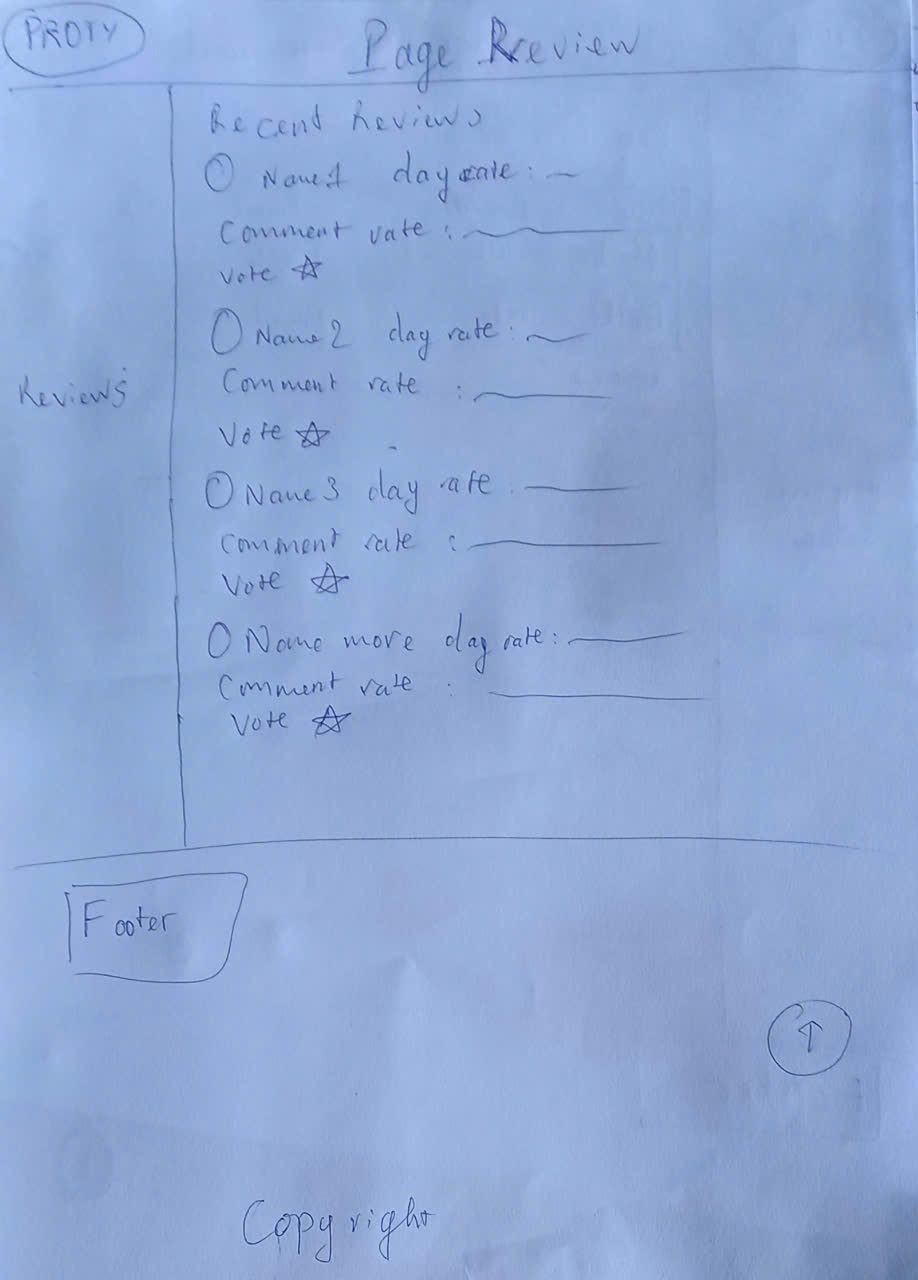 PROTY
Page Review
Recent Reviews
Name1 day rate :
Comment rate :
Vote
Name2 day rate :
Comment rate :
Vote
Reviews
Name3 day rate :
Comment rate :
Vote
Name more day rate :
Comment rate :
Vote
Footer
↑
Copyright